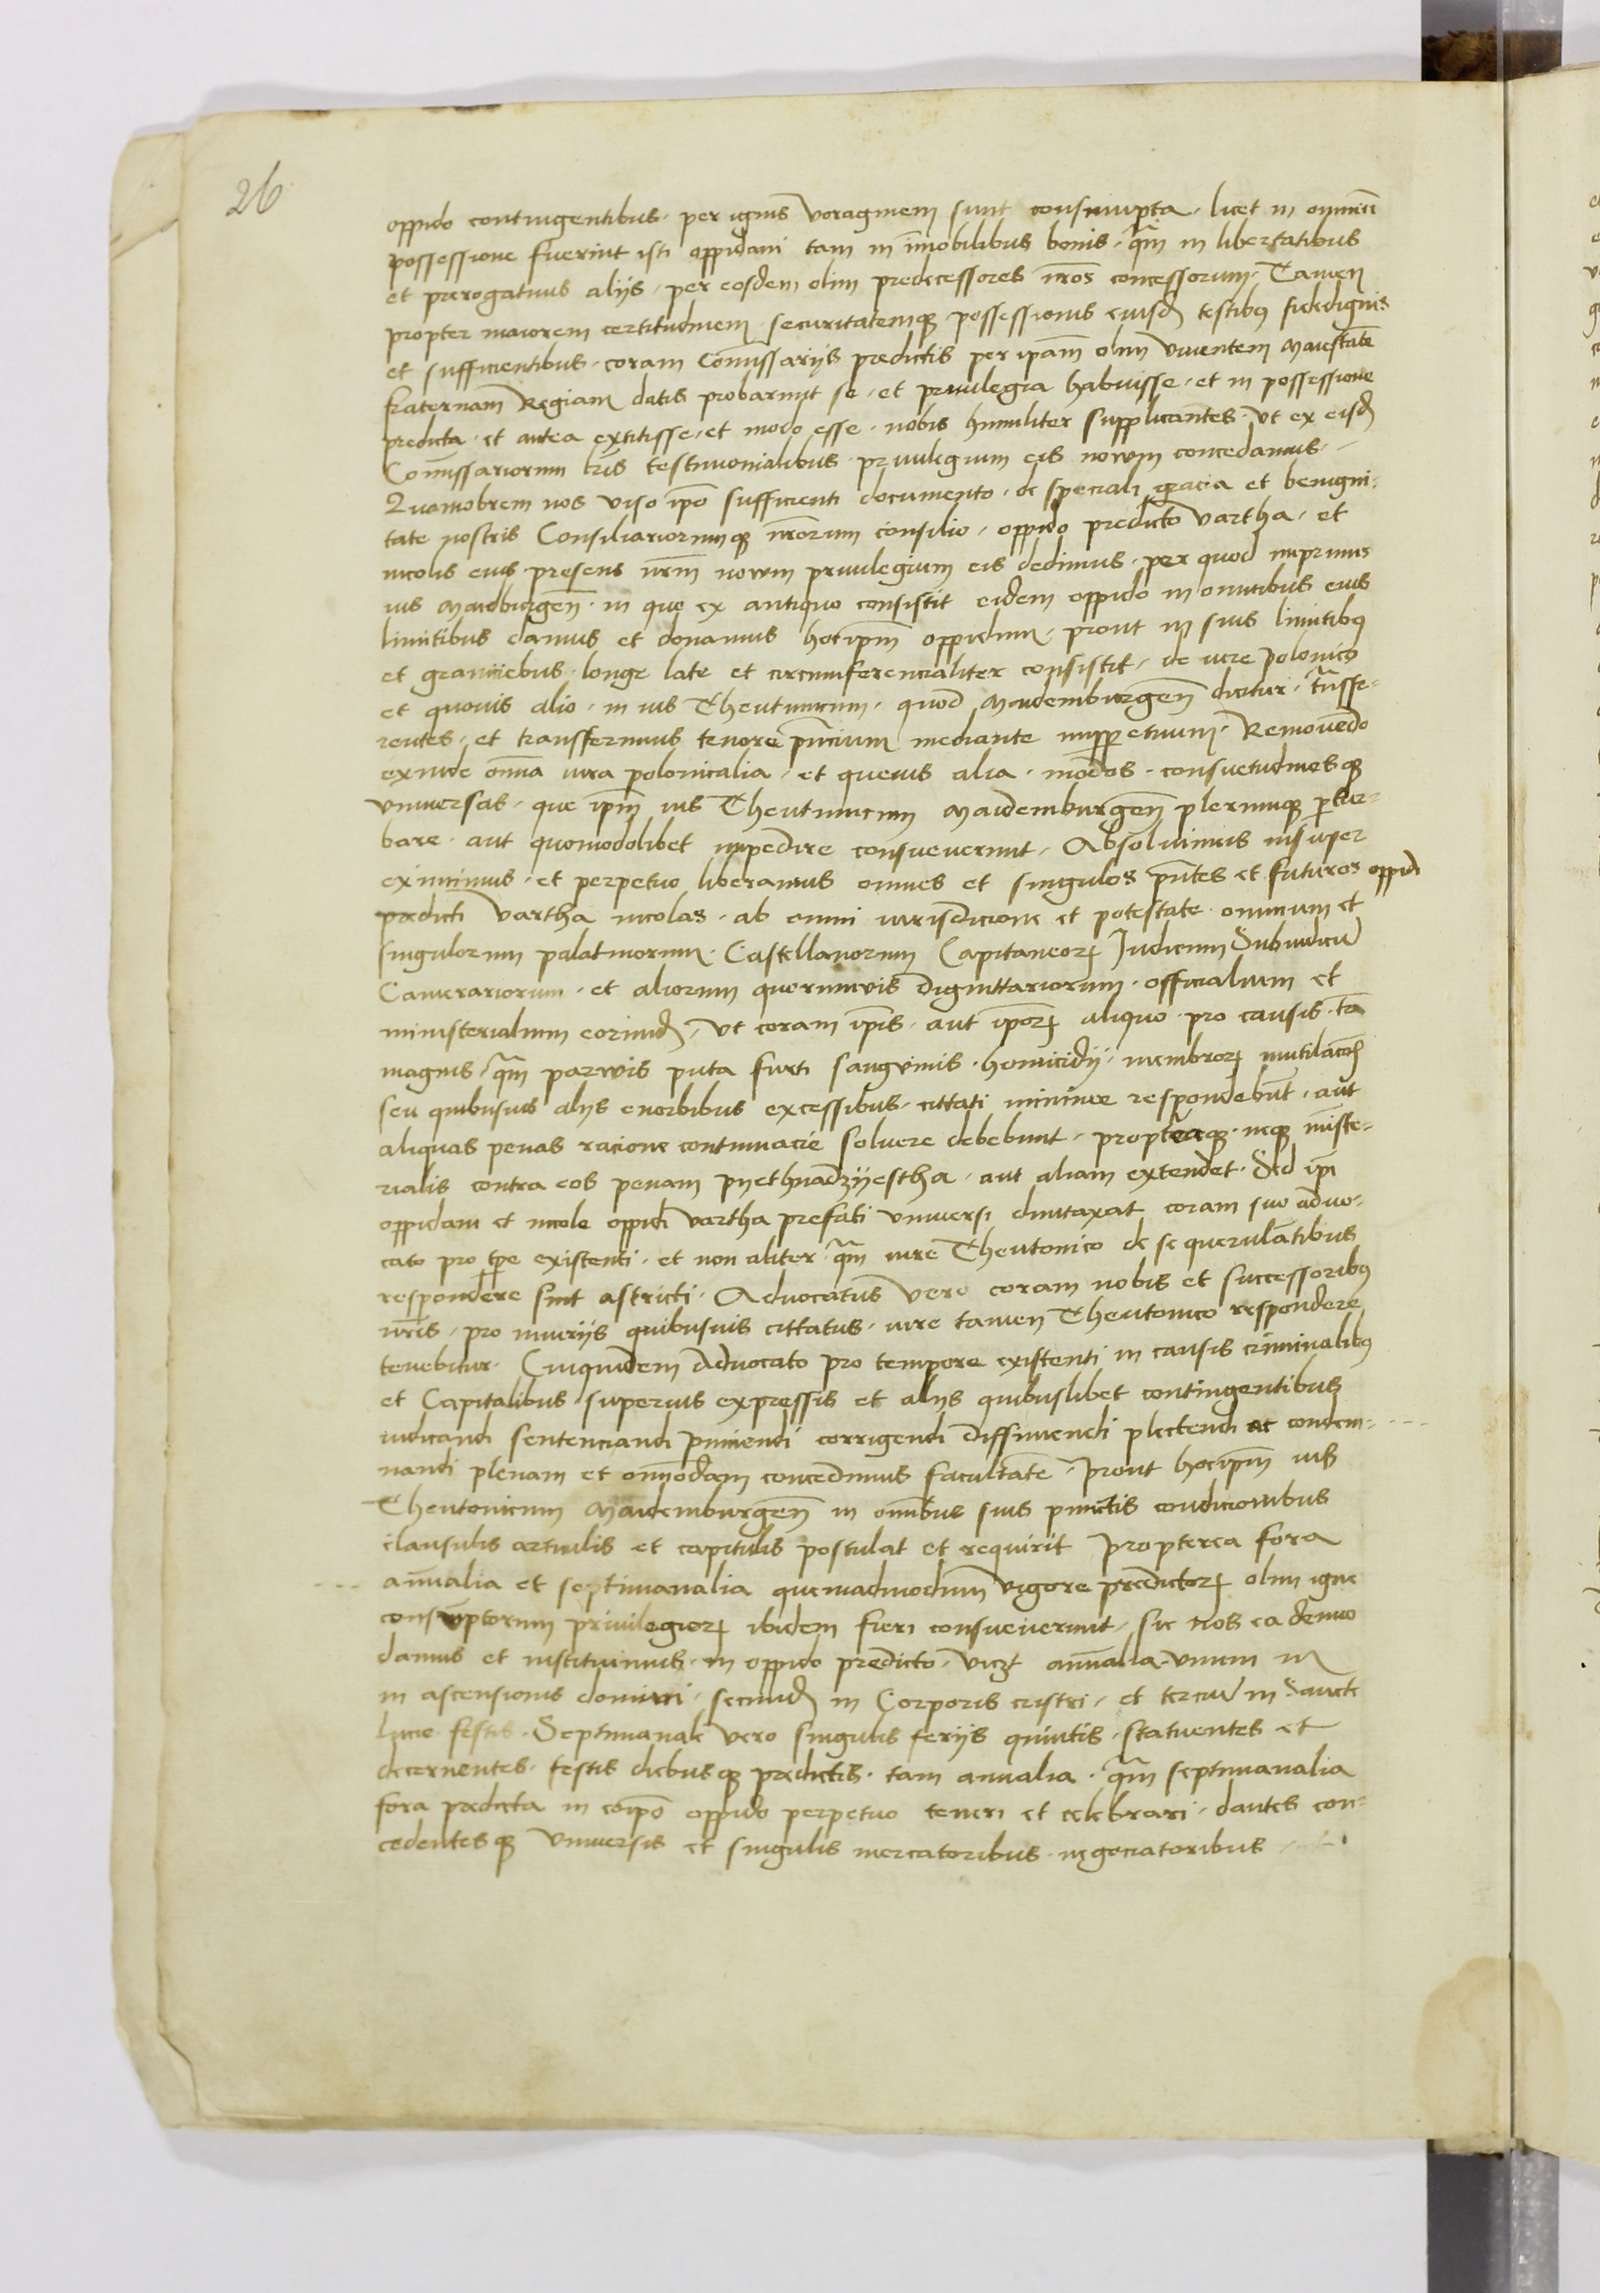 26
oppido contingentibus · per ignis voraginem sunt consumpta · licet in omnimoda
possessione fuerint isti oppidani tam in im̄obilibus bonis · qm̄ in libertatibus
et prerogatiuis alijs · per eosdem olim predecessores nr̄os concessorum · Tamen
propter maiorem certitudinem securitatemq possessionis eiusd testibus fidedignis
et sufficientibus · coram Com̄issarijs predictis per ipam̄ olim viuentem Maiestatē
fraternam Regiam datis probarunt se · et priuilegia habuisse · et in possessione
predicta · et antea extitisse · et modo esse · nobis humiliter supplicantes · vt ex eisd
Com̄issariorum lr̄is testimonialibus · priuilegium eis nowm concedamus ·
Quamobrem nos viso ip̄o sufficienti documento · de speciali gracia et benigni-
tate nostris Consiliariorumq nr̄orum consilio · oppido predicto Vartha · et
incolis eius presens nr̄m nowm priuilegium eis dedimus · per quod inprimis
ius Maidburgeñ · in quo ex antiquo consistit eidem oppido in omnibus eius
limitibus damus et donamus hocipm̄ oppidum · prout in suis limitibus
et graniciebus · longe late et circumferencialiter consistit · de iure polonico
et quouis alio · in ius Theutunicum · quod Maidemburgeñ dicitur · trāsfe-
rentes · et transferimus tenore pn̄cium mediante inpperpetuum · Remouēdo
exinde om̄ia iura polonicalia · et queuis alia · modos · consuetudinesq
vniuersas · que ipm̄ ius Theutunicum Maidemburgeñ plerumq p̄tur-
bare · aut quomodolibet impedire consueuerunt · Absoluimus insuper
eximimus · et perpetuo liberamus omnes et singulos pn̄tes et futuros oppidi
predicti Vartha incolas · ab omni iurisdicione et potestate omnium et
singulorum palatinorum · Castellanorum Capitaneorꝝ Judicum Subiudicū
Camerariorum · et aliorum quorumvis Dignittariorum · officialium et
ministerialium eorund · vt coram ip̄is · aut ip̄orꝝ aliquo · pro causis · tā
magnis · qm̄ parwis puta furti sangvinis · homicidij · membrorꝝ mutilacōis
seu quibusuis alijs enorbibus excessibus · cittati minime respondebūt · aut
aliquas penas racione contumacie soluere debebunt · proptereaq · neq mīste-
rialis contra eos penam pyethnadzyestha · aut aliam extendet · Sed ip̄i
oppidani et incole oppidi Vartha prefati vniuersi dumtaxat coram suo aduo-
cato pro tp̄e existenti · et non aliter qm̄ iure Theutonico de se querulātibus
respondere sint astricti · Aduocatus vero coram nobis et successoribus
nr̄is · pro iniurijs quibusuis cittatus · iure tamen Theutonico respondere
tenebitur · Cuiquidem Aduocato pro tempore existenti in causis criminalibus
et Capitalibus superius expressis et alijs quibuslibet contingentibus
iudicandi sentenciandi puniendi corrigendi diffiniendi plectendi ac condem-
nandi plenam et om̄odam concedimus facultatē · prout hocipm̄ ius
Theutonicum Maidemburgeñ in om̄ibus suis punctis condicionibus
clausulis articulis et capitulis postulat et requirit propterea fora
an̄ualia et septimanalia quemadmodum vigore predictorꝝ olim igne
consumptorum priuilegiorꝝ ibidem fieri consueuerunt · sic nos ea denuo
damus et instituimus · in oppido predicto · vicꝫt an̄ualia · vnum in
in ascensionis domini · secund in Corporis cristi · et terciū in Sancte
lucie festis · Septimanale vero singulis ferijs quintis · statuentes et
decernentes · festis diebusq predictis · tam annalia · qm̄ septimanalia
fora predicta in eoip̄o oppido perpetuo teneri et celebrari · dantes con-
cedentesq vniuersis et singulis mercatoribus · negociatoribus